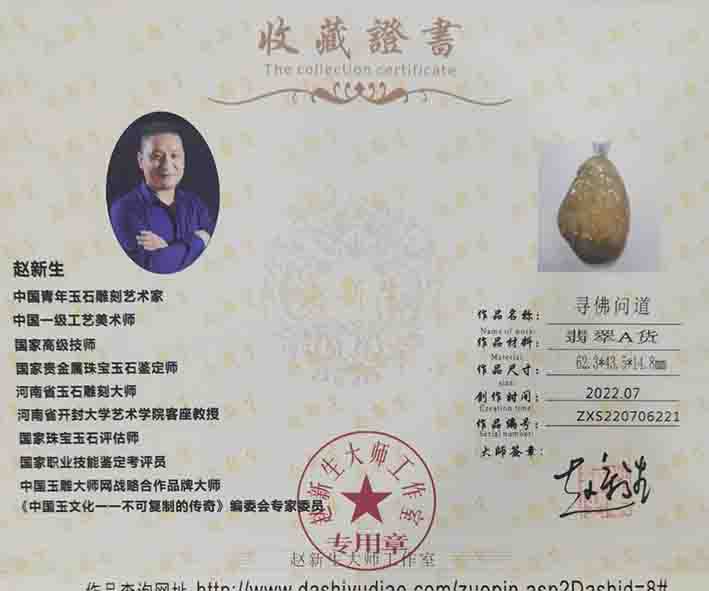 收藏證書
The collection certificate
赵新生
中国青年玉石雕刻艺术家
中国一级工艺美术师
国家高级技师
国家贵金属珠宝玉石鉴定师
河南省玉石雕刻大师
河南省开封大学艺术学院客座教授
国家珠宝玉石评估师
国家职业技能鉴定考评员
中国玉雕大师网战略合作品牌大师
《中国玉文化一一不可复制的传奇》编委会专家委员
作品名称: 寻佛问道
Name of work:
作品材料: 翡翠A货
Material:
作品尺寸: 62.3*43.5*14.8mm
size:
创作时间: 2022.07
Creation time:
作品编号: ZXS220706221
Serial number:
大师签章:
赵新生
赵新生大师工作室
专用章
赵新生大师工作室
作品查询网址 http://www.dashiyudiao.com/zuopin.asp?Dashid=8#